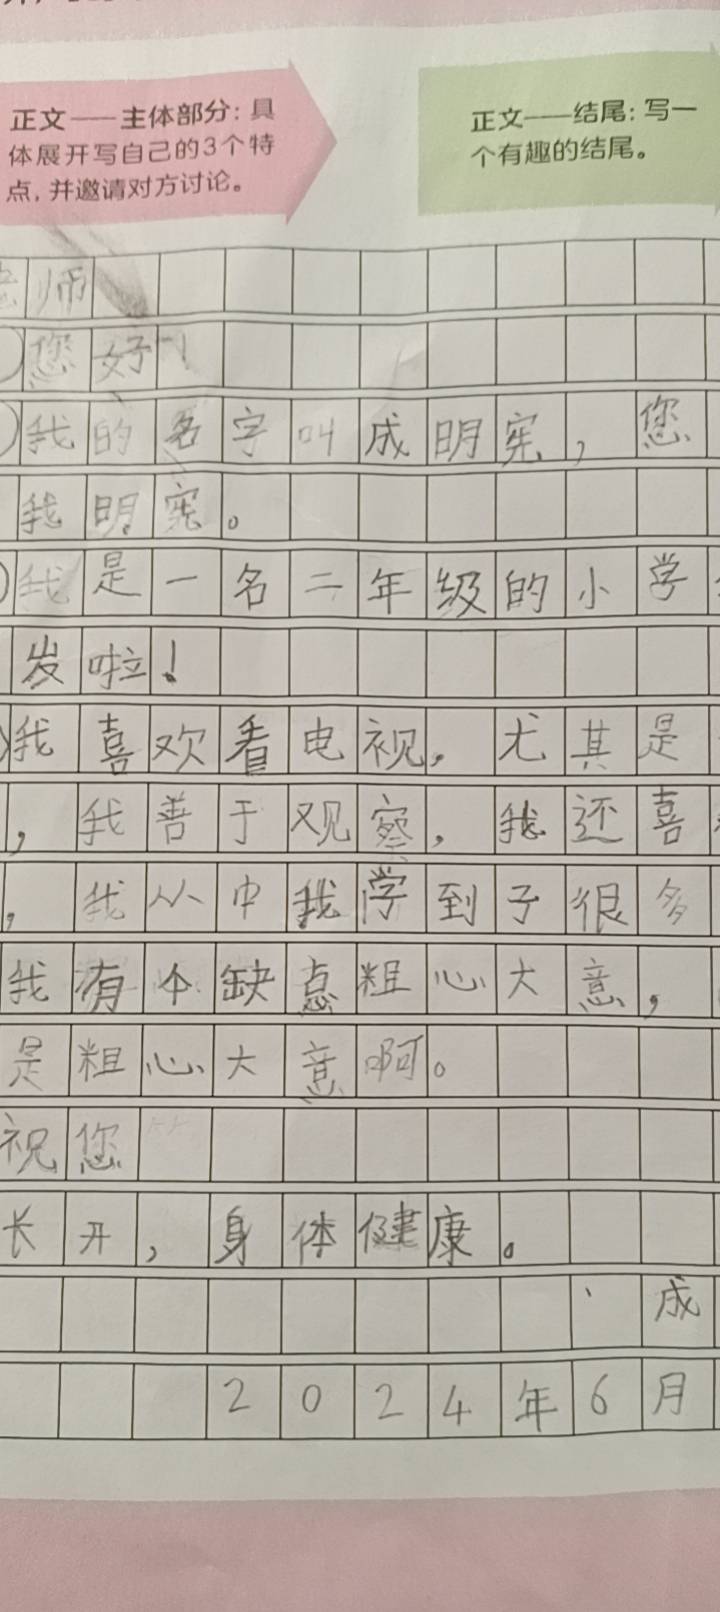 正文——主体部分：具
体展开写自己的3个特
点，并邀请对方讨论。
正文——结尾：写一
个有趣的结尾。
老师
您好！
我的名字叫成明宪，您
我明宪。
我是一名二年级的小学
岁啦！
我喜欢看电视，尤其是
，我善于观察，我还喜
，我从中我学到了很多
我有个缺点粗心大意，
是粗心大意啊。
祝您
长开，身体健康。
成
2024年6月